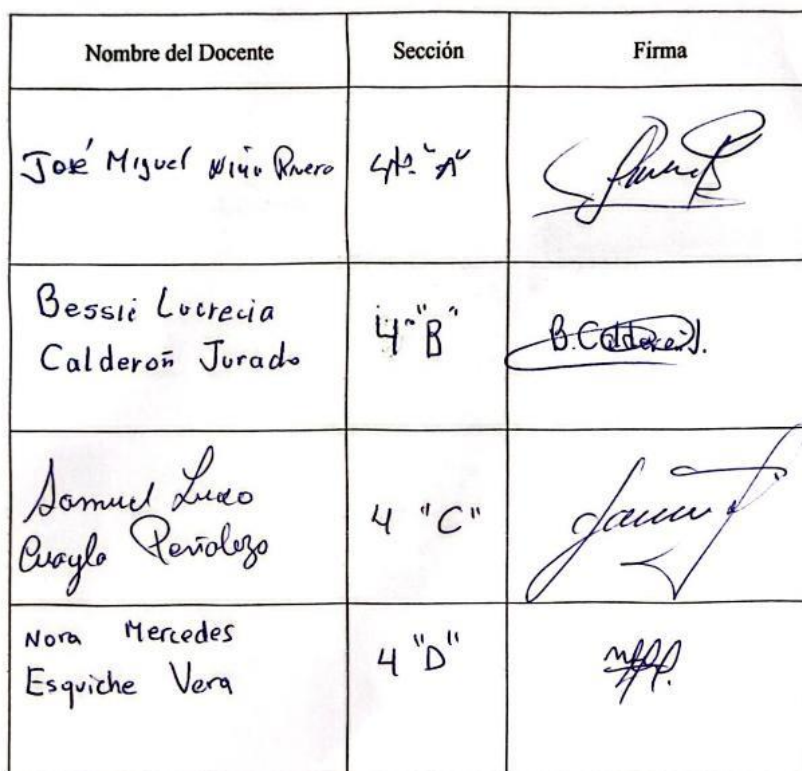 Nombre del Docente
Sección
Firma
José Miguel Niño Rivero
4to "A"
Bessie Lucrecia
Calderón Jurado
4 "B"
B. Calderón J.
Samuel Lucio
Cuayla Peñaloza
4 "C"
Nora Mercedes
Esquiche Vera
4 "D"